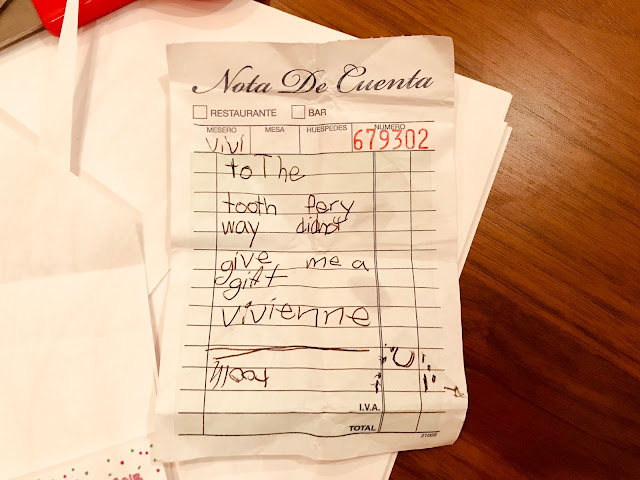 Nota De Cuenta
RESTAURANTE BAR
MESERO MESA HUESPEDES NUMERO
vivi 679302
to The
tooth fery
way didnot
give me a
gift
vivienne
I.V.A.
TOTAL
21005